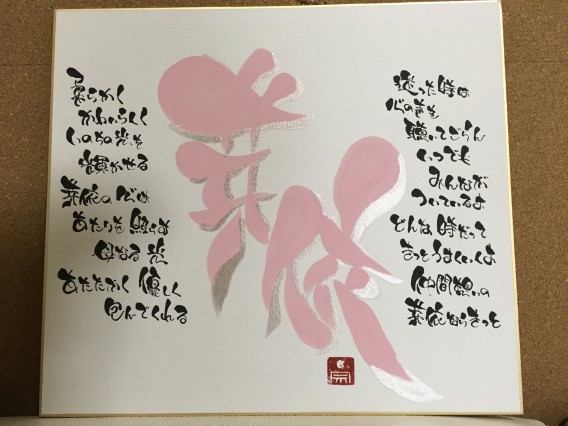 芽依
柔らかく
かわいらしく
いのちの光を
輝かせる
芽依の心は
あたりを照らす
母なる光
あたたかく 優しく
包んでくれる
迷った時は
心の声を
聴いてごらん
いつでも
みんなが
ついているよ
どんな時だって
きっとうまくいくよ
仲間想いの
芽依ならきっと